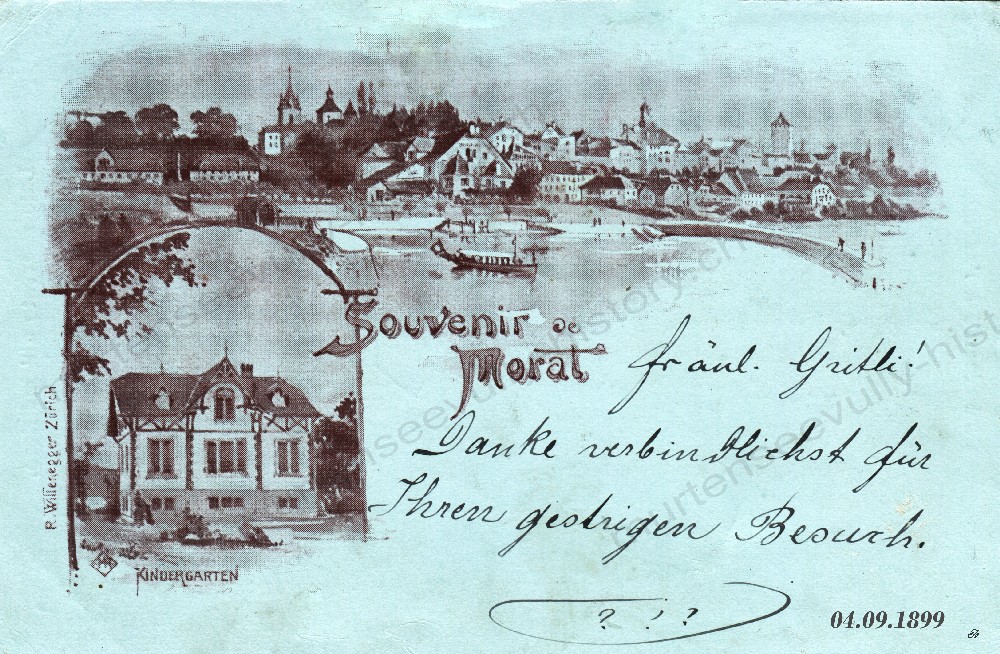 Souvenir de
Morat
Fräul. Gritli!
Danke verbindlichst für
Ihren gestrigen Besuch.
? !? ?
R. Willenegger Zürich
KINDERGARTEN
04.09.1899